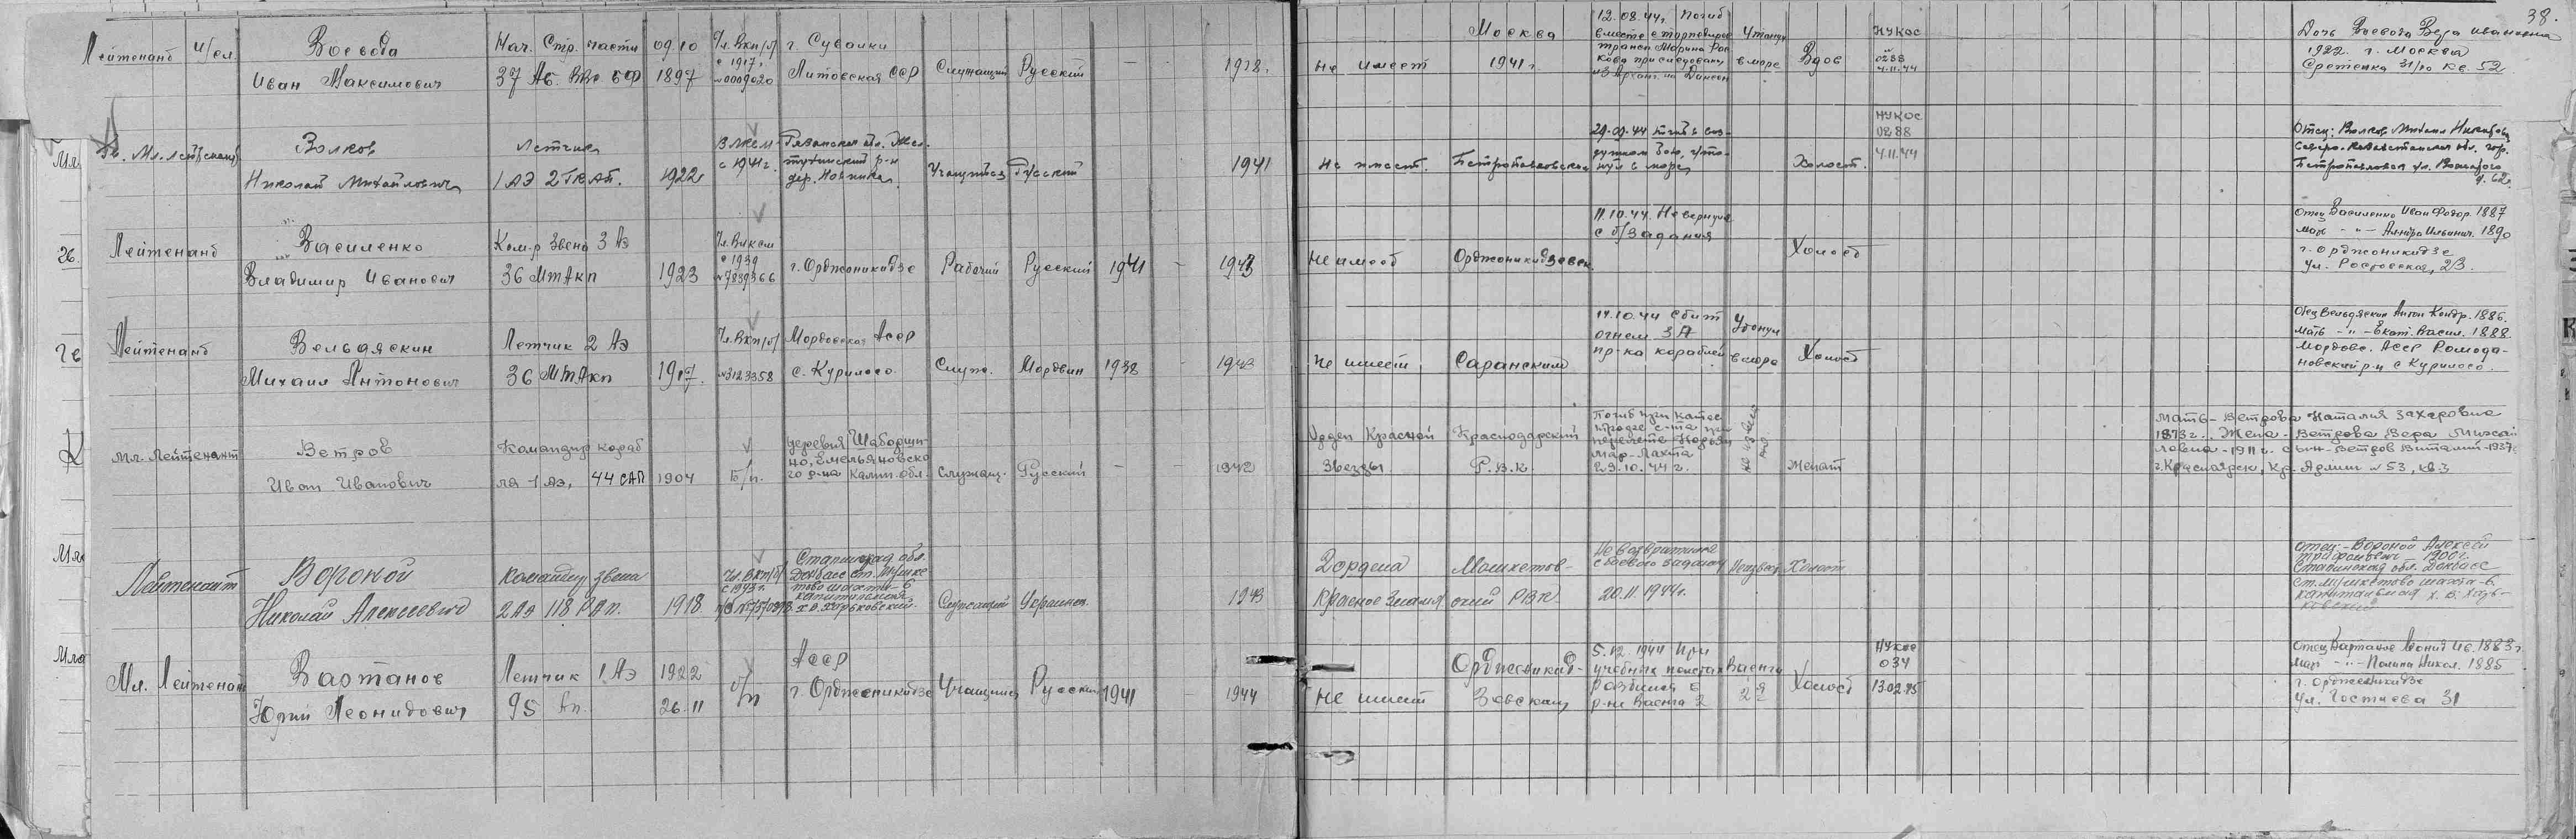 38.
Лейтенант и/сл. Воевода Нач. Стр. части 09.10 Чл. Вкп/б/ г. Сувалки
Иван Максимович 37 Аб. ВВс БФ 1897 с 1917г. №0009020 Литовская ССР Служащий Русский — — 1918.
не имеет Москва 1941г.
12.08.44г. Погиб
вместе с торпедиров
трансп. Марина Рас
кова при следовании
из Арханг. на Диксон
Утонул
в море
Вдов
НУКОС
0288
4.11.44
Дочь Воевода Вера Ивановна
1922. г. Москва
Сретенка 31/10 кв. 52
Гв. Мл. лейтенант Волков Летчик
Николай Михайлович 1 АЭ 2 ГКАП. 1922
ВЛКСМ
с 1941г.
Рязанская обл.
р-н
дер. Новинка
Учащийся Русский 1941
не имеет. Петропавловским
29.09.44 Погиб в воз-
душном бою, уто-
нул в море
Холост.
НУКОС
0288
4.11.44
Отец: Волков Михаил
Северо-Казахстанская обл. гор.
Петропавловск ул.
д. 62.
26.
Лейтенант Василенко Ком-р Звена 3 Аэ Чл. Влксм
Владимир Иванович 36 МтАкп 1923 с 1939 №7839366 г. Орджоникидзе Рабочий Русский 1941 — 1943
Не имеет Орджоникидзевск.
11.10.44. Не вернулся
с б/задания
Холост
Отец Василенко Иван Федор. 1887
мать -"- 1890
г. Орджоникидзе
ул. Ростовская, 23.
Лейтенант Вельдяскин Летчик 2 Аэ Чл. Вкп/б/ Мордовская Асср
Михаил Антонович 36 МтАкп 1917. №3123358 с. Курилово Служ. Мордвин 1938 — 1943
Не имеет Саранским
14.10.44 Сбит
огнем ЗА
пр-ка кораблей
Утонул
в море
Холост
Отец Вельдяскин Антон Кондр. 1886.
мать -"- Екат. Васил. 1888
Мордовс. Асср Ромода-
новский р-н с Курилово.
Мл. Лейтенант Ветров Командир кораб
Иван Иванович ля 1 Аэ, 44 САП 1904 Б/п.
деревня
но, Емельяновско
го р-на Калин. обл.
Служащ. Русский — — 1942
Орден Красной
Звезды
Краснодарский
Р.В.К.
Погиб при катас
трофе с-та при
перелете Нарьян
мар - Лахта
29.10.44 г.
Женат
Мать - Ветрова Наталия Захаровна
1873 г. Жена - Ветрова Вера Михай
ловна - 1911 г. сын - Ветров Виталий - 1937
г. Красноярск, Кр. Армии №53, кв. 3
Лейтенант Вороной командир звена
Николай Алексеевич 2 Аэ 118 РАП. 1918
Чл. Вкп/б/
с 1943г.
Сталинград обл.
Донбасс ст.
Служащий Украинец 1943
2 ордена
Красное Знамя
Машкетов-
ский РВК
Не возвратился
с боевого задания
20.11.1944г.
Неизвест Холост
отец - Вороной Алексей
Трифонович 1900г.
Сталинская обл. Донбасс
ст. Мушкетово шахта-6
капитальная х. В. Харь-
ковский
Мл. Лейтенант Вартанов Летчик 1 Аэ 1922 б/п Асср
Юрий Леонидович 95 Ап. 26.11 г. Орджоникидзе Учащийся Русский 1941 1944
Не имеет
Орджоникид-
зевским
5.12.1944 При
учебных полетах
разбился в
р-не Ваенга 2
Ваенга
2я
Холост
НУКОС
034
13.02.45
Отец Вартанов Леонид Ив. 1883г.
мать -"- Полина Никол. 1885
г. Орджоникидзе
Ул. 31